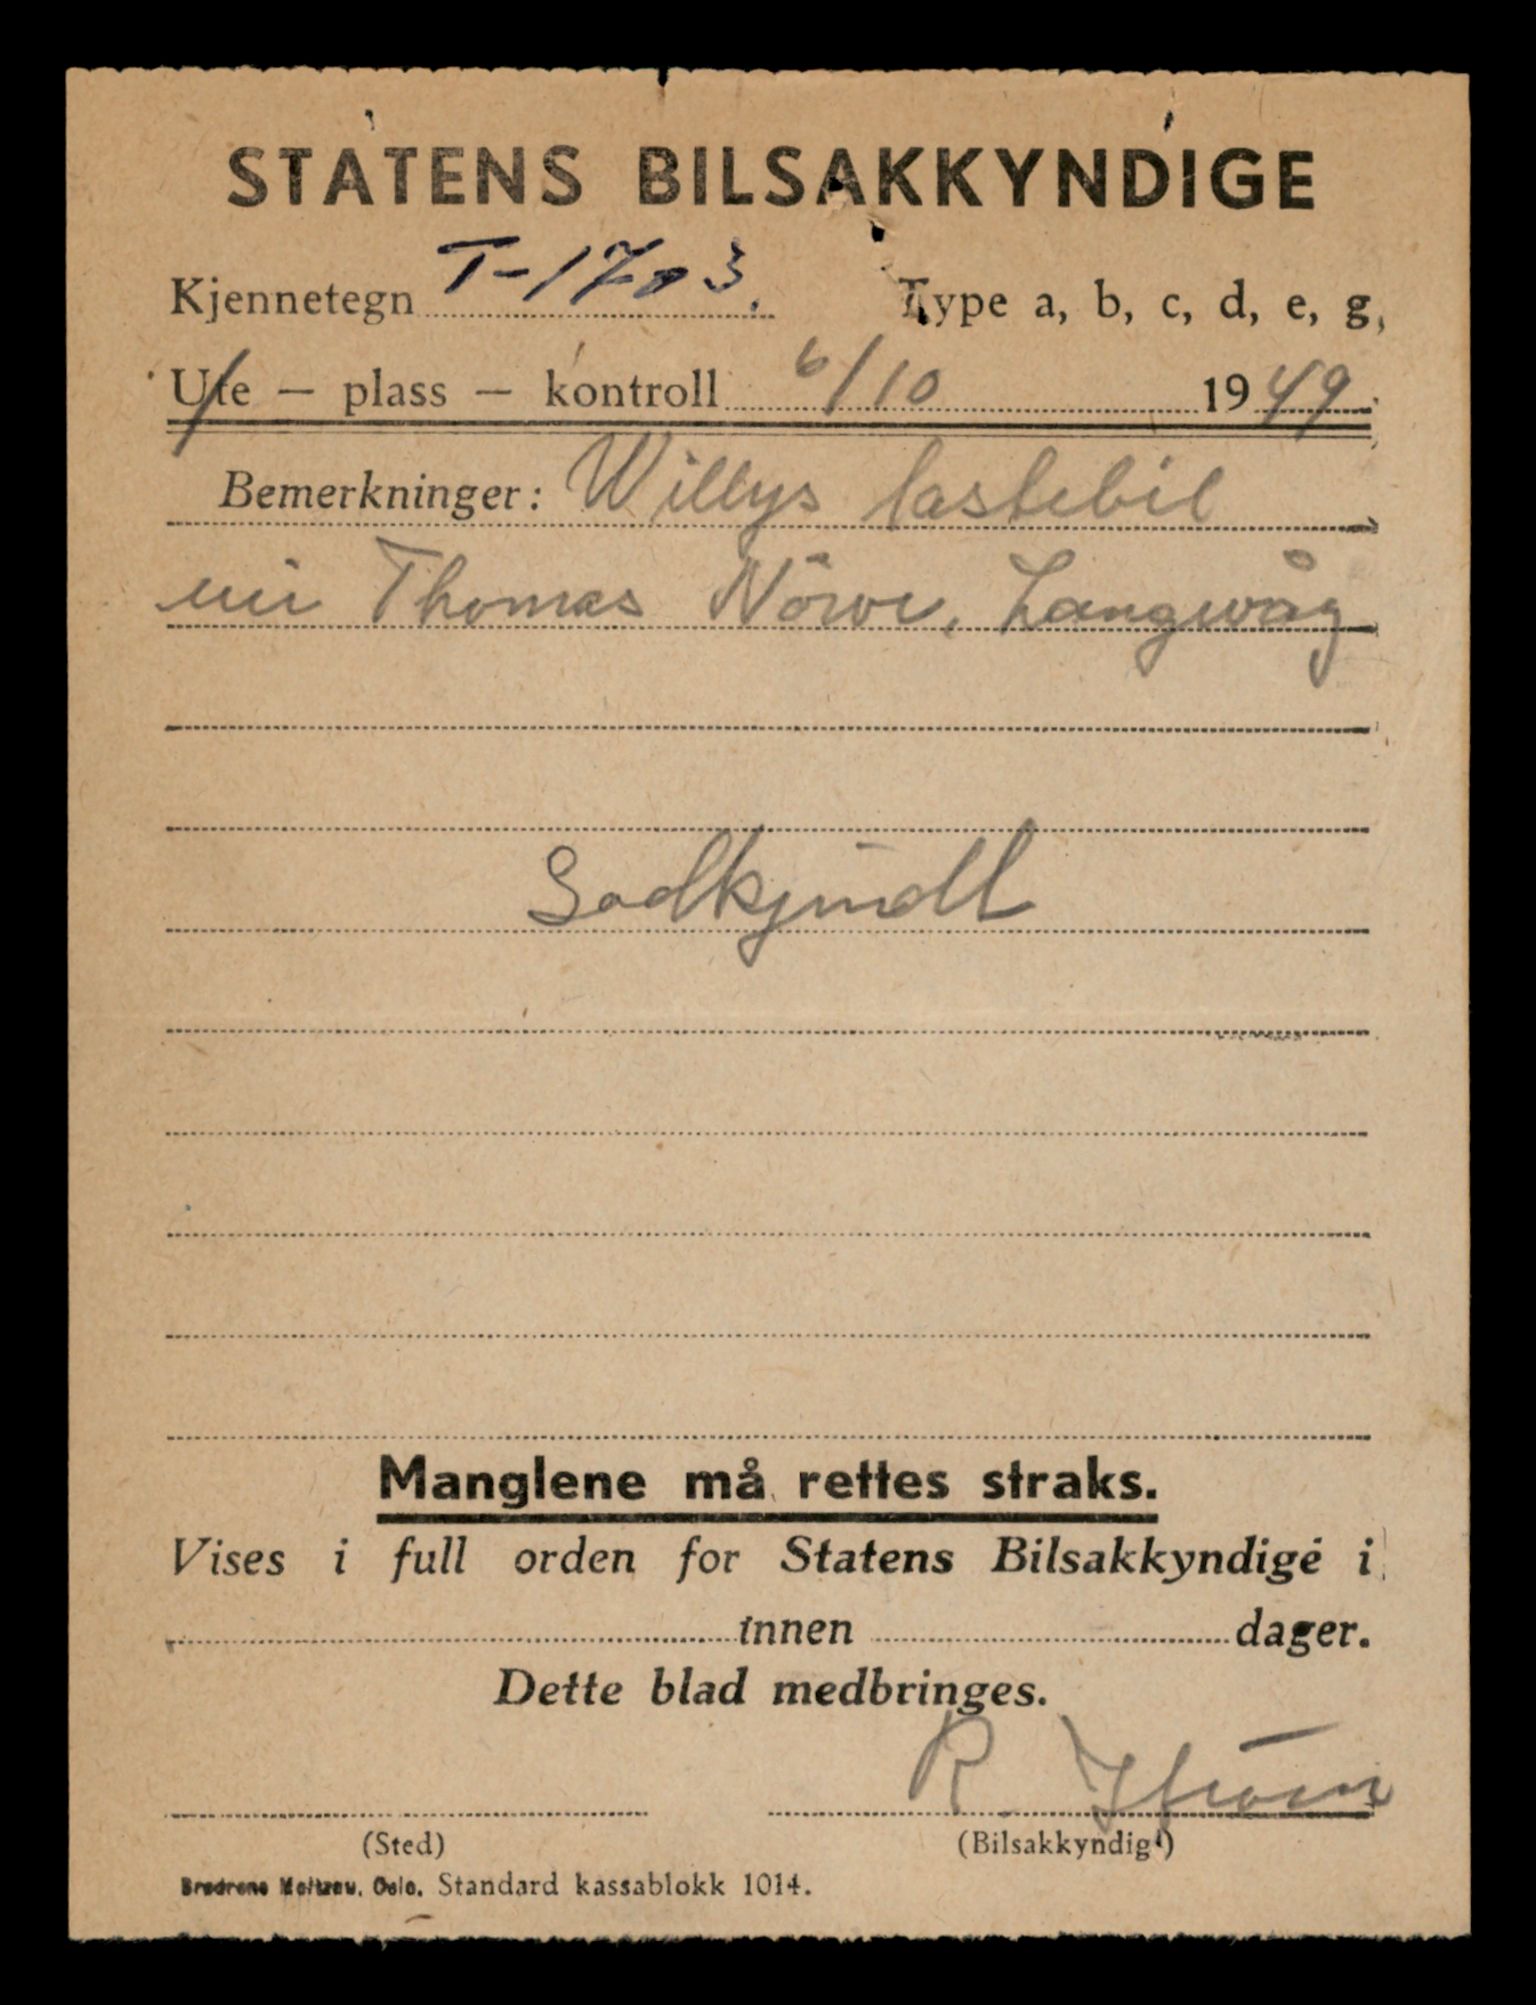 STATENS BILSAKKYNDIGE
Kjennetegn T-1703. Type a, b, c, d, e, g,
Ute — plass — kontroll 6/10 1949
Bemerkninger: Willys lastebil
Thomas Nörve, Langevåg
Godkjendt
Manglene må rettes straks.
Vises i full orden for Statens Bilsakkyndige i
innen dager.
Dette blad medbringes.
R
(Sted) (Bilsakkyndig)
Brødrene Meltzau, Oslo. Standard kassablokk 1014.